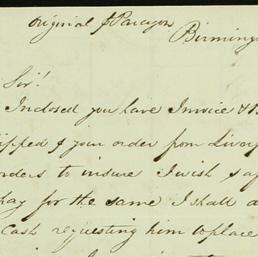 Original p Paragon
Birming
Sir!
Inclosed you have Invoice & B
ipped p your order from Liver
orders to insure I wish
pay for the same I shall
Cash requesting him to place